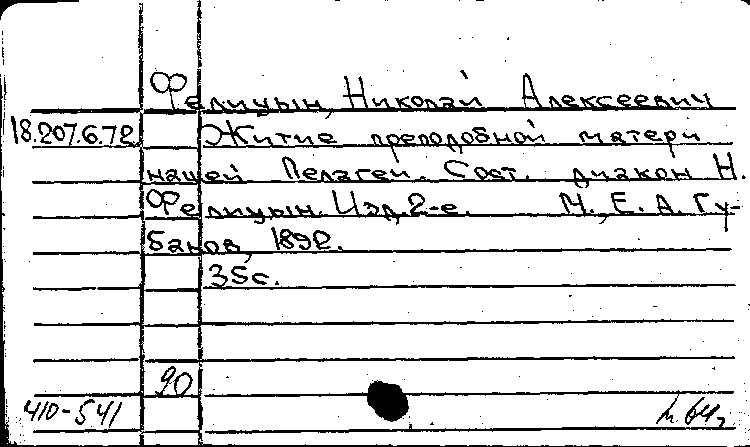 Фелицын, Николай Алексеевич
18.207.6.72 Житие преподобной матери
нашей Пелагеи. Сост. диакон Н.
Фелицын. Изд. 2-е. М., Е. А. Гу-
банов, 1892.
35с.
90
410-541